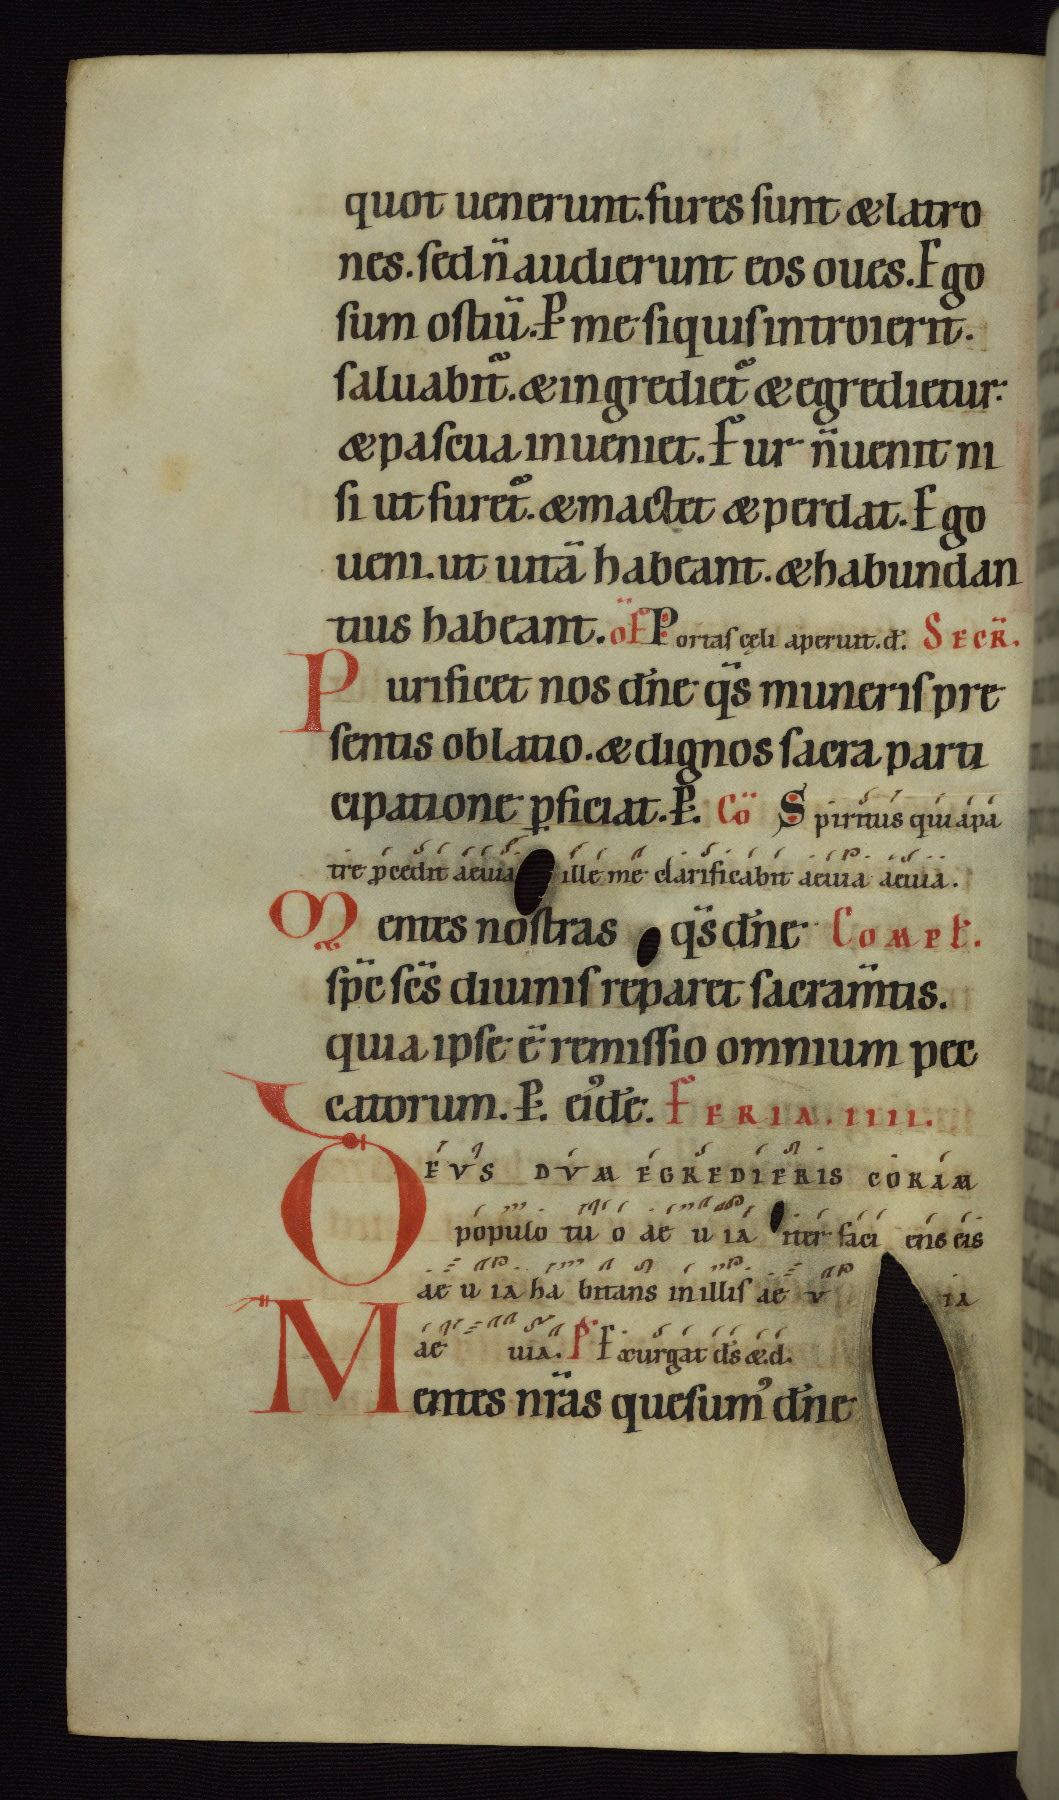 quot uenerunt. fures ſunt & latro
nes. ſed n̄ audierunt eos oues. Ego
ſum oſtiū. P̄ me ſi quiſ introierit.
ſaluabit᷑. & ingrediet᷑ & egredietur:
& paſcua inueniet. Fur n̄ uenit ni
ſi ut furet᷑. & mactet & perdat. Ego
ueni. ut uitā habeant. & habundan
tius habeant. Of̄F Portaſ cęli aperuit. d̄. SECR̄.
Purificet nos dn̄e q̄s muneriſ pre
ſentis oblatio. & dignos ſacra parti
cipatione ꝑficiat. P̄. Cō Spiritus qui a pa
tre ꝓcedit aeuia ille me clarificabit aeuia aeuia.
Mentes noſtras q̄s dn̄e COMPL̄.
ſp̄c ſc̄s diuiniſ reparet ſacram̄tis.
quia ipſe ē remiſſio omnium pec
catorum. P̄. eiꝰdē. FERIA. IIII.
DEVS DVM EGREDIERIS CORAM
populo tu o ae u ia iter faci ens eis
ae u ia ha bitans in illiſ ae v ia
ae uia. P̄ Exurgat d̄s &. d.
Mentes nr̄as queſumꝰ dn̄e